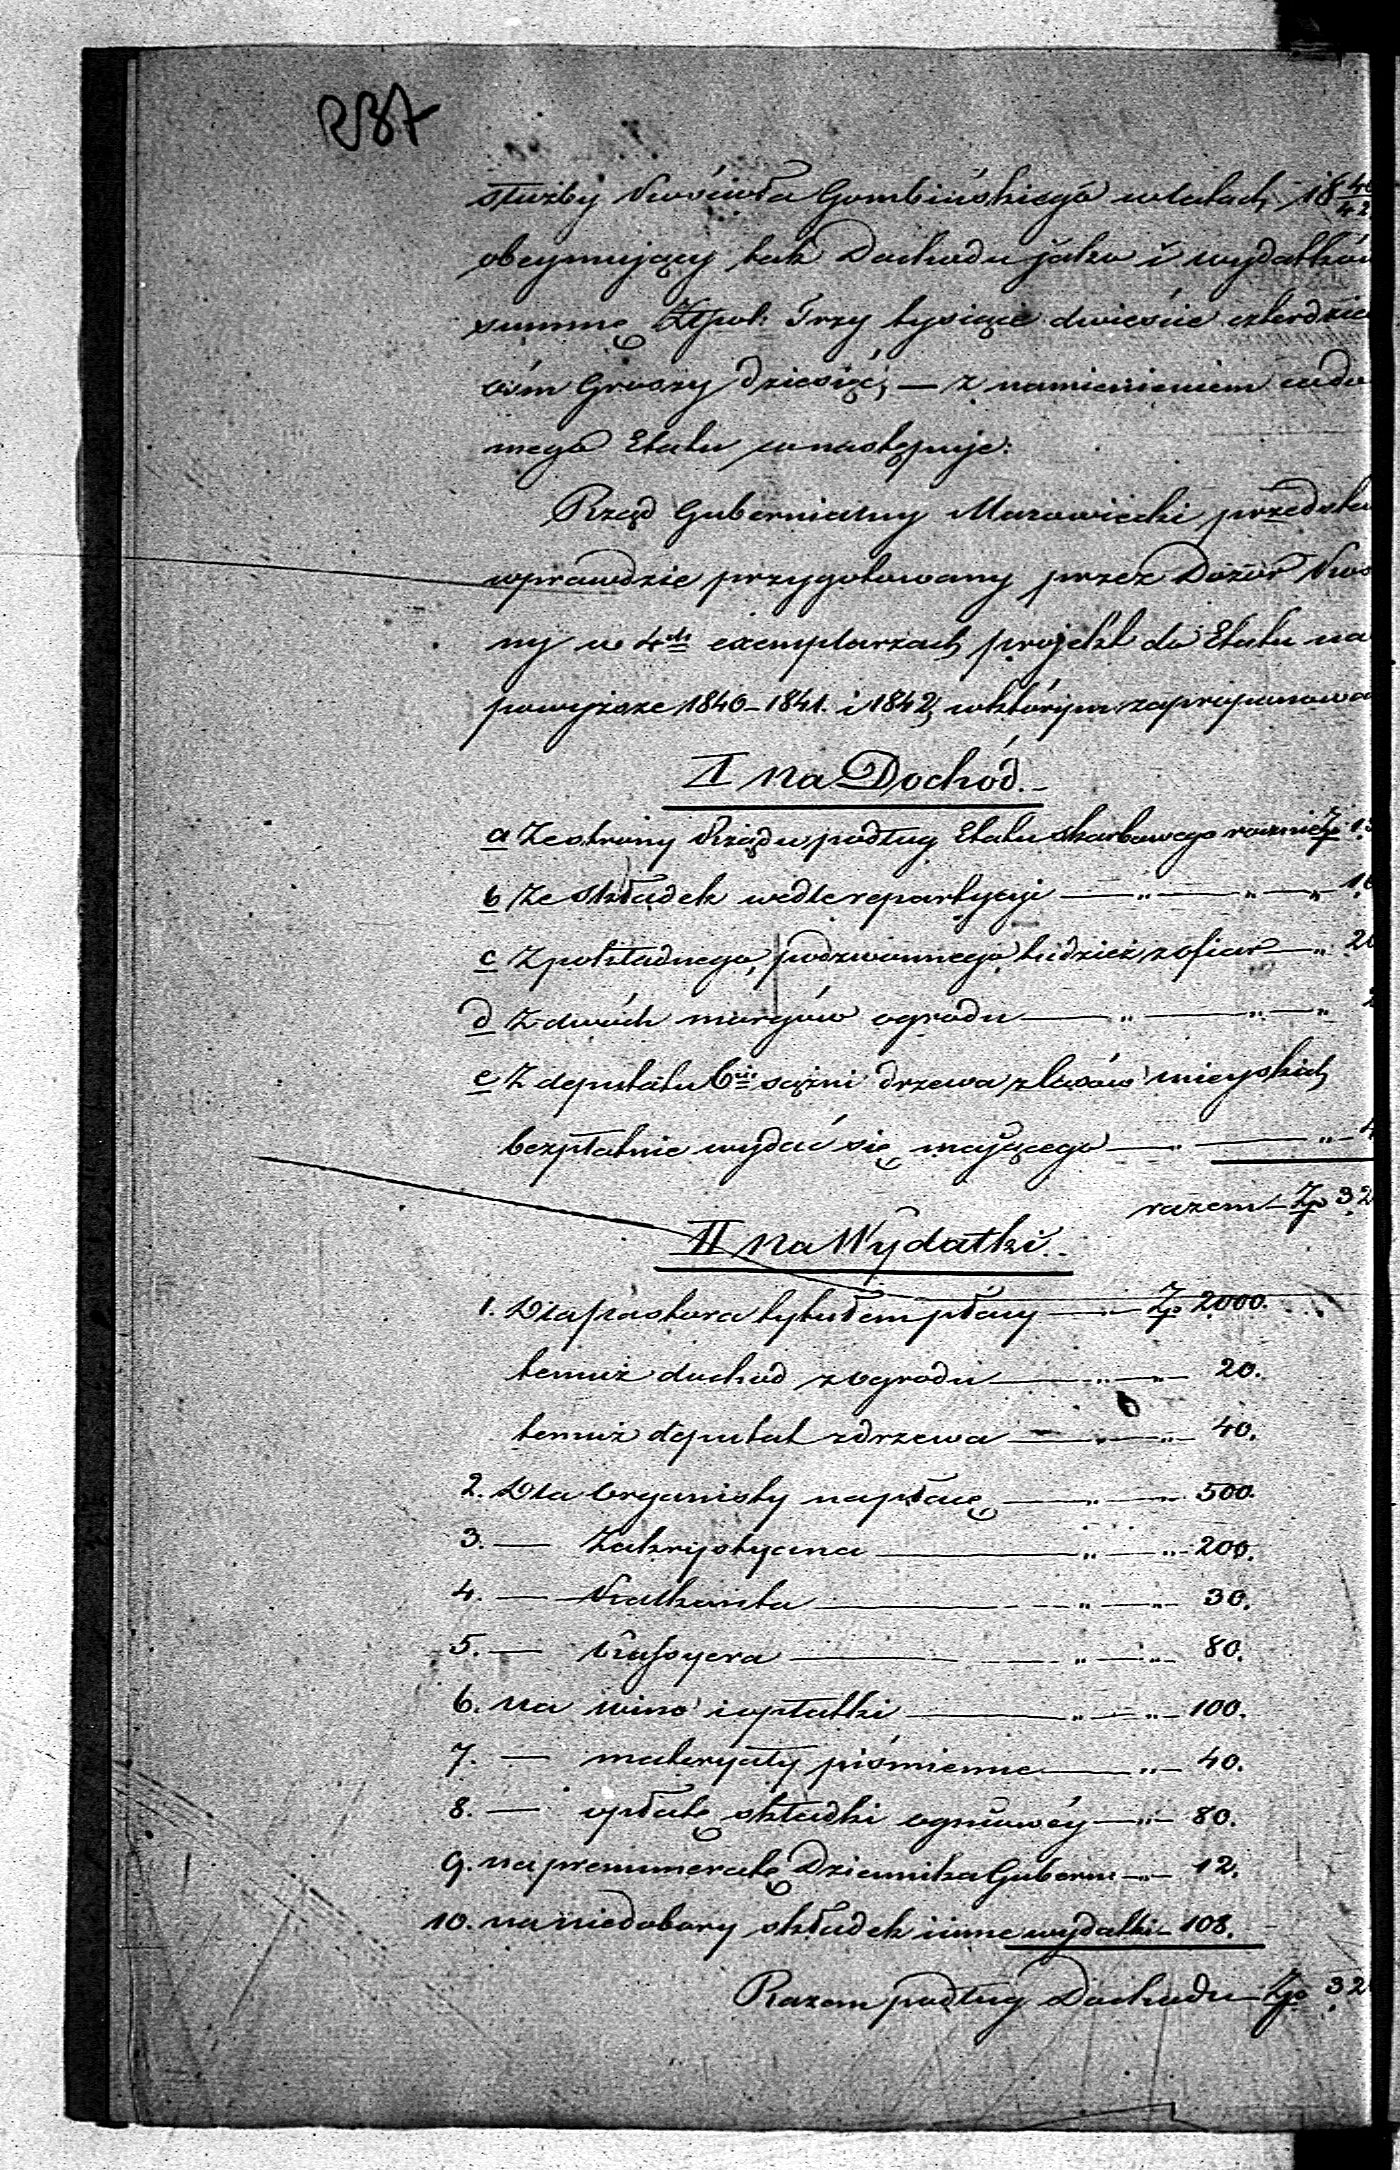 237
służby Kościoła Gombińskiego w latach 18 40/42
obeymujący tak Dochodu jako i wydatków
summę Złpol: Trzy tysiące dwieście czterdzie
ośm Groszy dziesięć, — z namienieniem co do
mego Etatu co następuje:
Rząd Gubernialny Mazowiecki przedsta
wprawdzie przygotowany przez Dozór Kos
ny w 4ch exemplarzach projekt do Etatu na
powyższe 1840–1841. i 1842, w którym zaproponowa
I Na Dochód.
a Ze strony Rządu podług Etatu skarbowego rocznie Zp 1
b Ze składek wedle repartycyi — „ — „ — „ — 1
c Z pokładnego, podzwonnego tudzież z ofiar — „ 2
d Z dwóch morgów ogrodu — „ — „ — „
e Z deputatu 6iu sążni drzewa z lasów mieyskich
bezpłatnie wydać się mającego — „ — „ — 4
razem — Zp 32
II Na Wydatki.
1. Dla pastora tytułem płacy — „ — Zp 2000.
temuż dochód z ogrodu — „ — „ — 20.
temuż deputat z drzewa — „ — „ — 40.
2. Dla Organisty na płacę — „ — 500.
3. — Zakrystyana — „ — „ — 200.
4. — Kalkanta — „ — „ — 30.
5. — Kassyera — „ — „ — 80.
6. na wino i opłatki — „ — „ — 100.
7. — materyały piśmienne — „ — 40.
8. — opłatę składki ogniowéy — „ — 80.
9. na prenumeratę Dziennika Gubern — „ — 12.
10. na niedobory składek i inne wydatki — 108.
Razem podług Dochodu — Zp 32